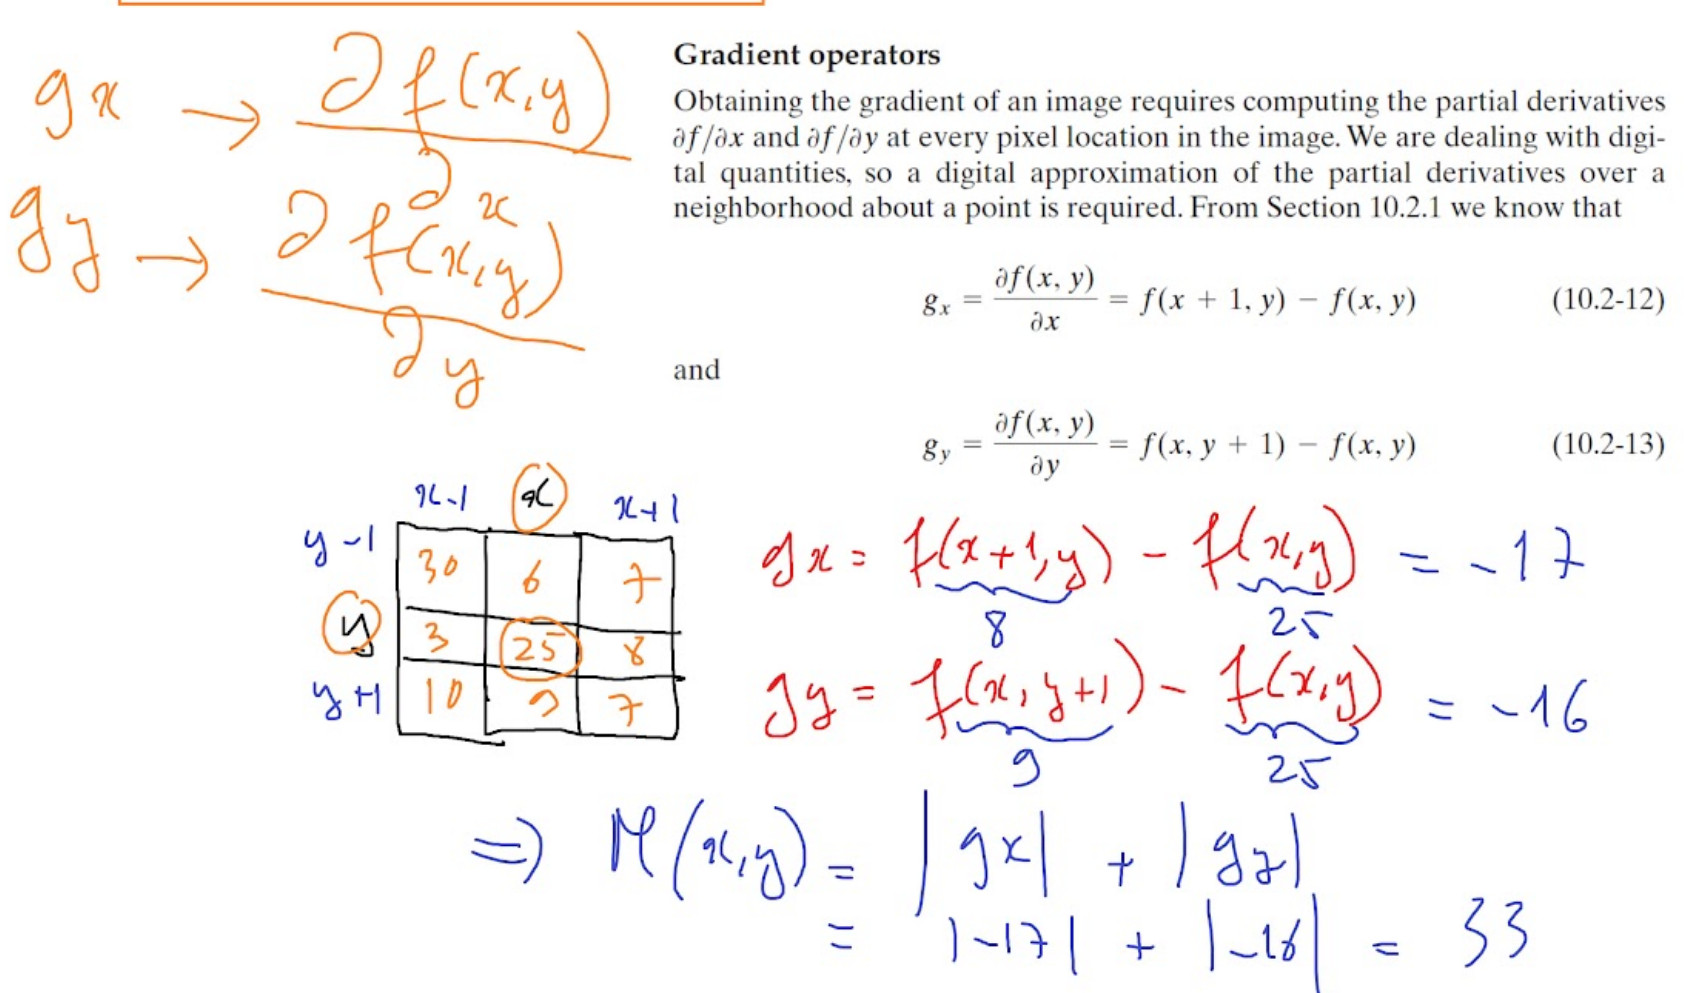 gx → ∂f(x,y)/∂x
gy → ∂f(x,y)/∂y
Gradient operators
Obtaining the gradient of an image requires computing the partial derivatives
∂f/∂x and ∂f/∂y at every pixel location in the image. We are dealing with digi-
tal quantities, so a digital approximation of the partial derivatives over a
neighborhood about a point is required. From Section 10.2.1 we know that
gx = ∂f(x, y)/∂x = f(x + 1, y) − f(x, y) (10.2-12)
and
gy = ∂f(x, y)/∂y = f(x, y + 1) − f(x, y) (10.2-13)
x-1 x x+1
y-1 30 6 7
y 3 25 8
y+1 10 9 7
gx = f(x+1,y) - f(x,y) = -17
8 25
gy = f(x,y+1) - f(x,y) = -16
9 25
⇒ M(x,y) = |gx| + |gy|
= |-17| + |-16| = 33